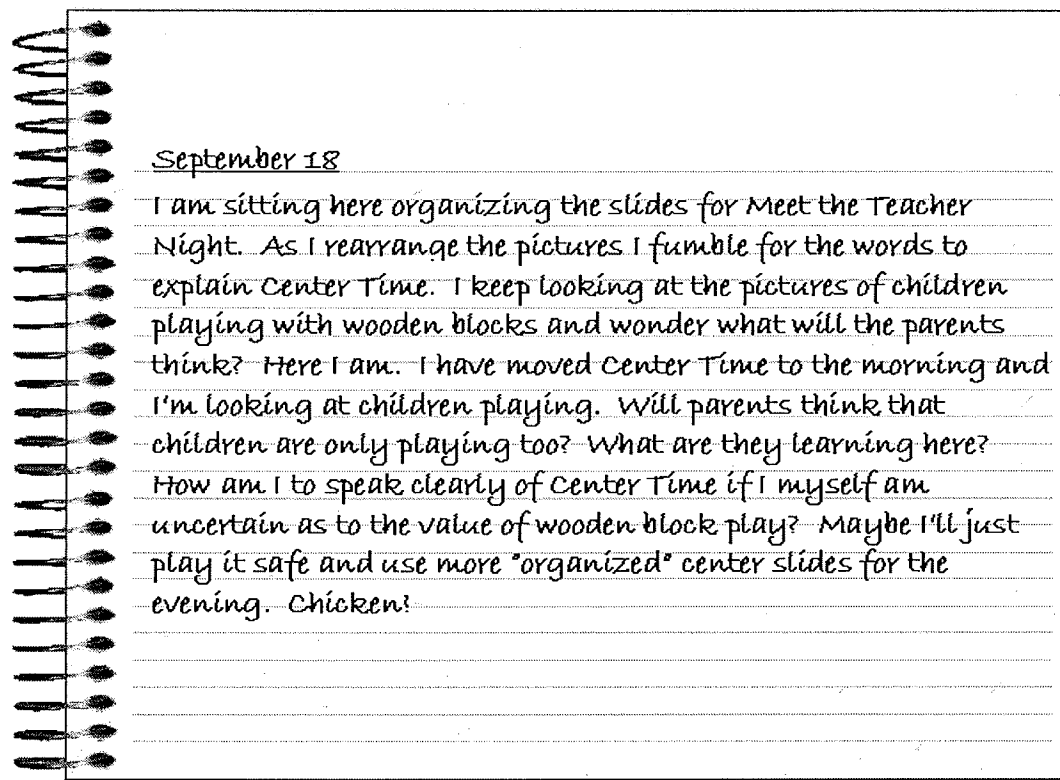 September 18
I am sitting here organizing the slides for Meet the Teacher
Night. As I rearrange the pictures I fumble for the words to
explain Center Time. I keep looking at the pictures of children
playing with wooden blocks and wonder what will the parents
think? Here I am. I have moved Center Time to the morning and
I'm looking at children playing. Will parents think that
children are only playing too? What are they learning here?
How am I to speak clearly of Center Time if I myself am
uncertain as to the value of wooden block play? Maybe I'll just
play it safe and use more "organized" center slides for the
evening. Chicken!